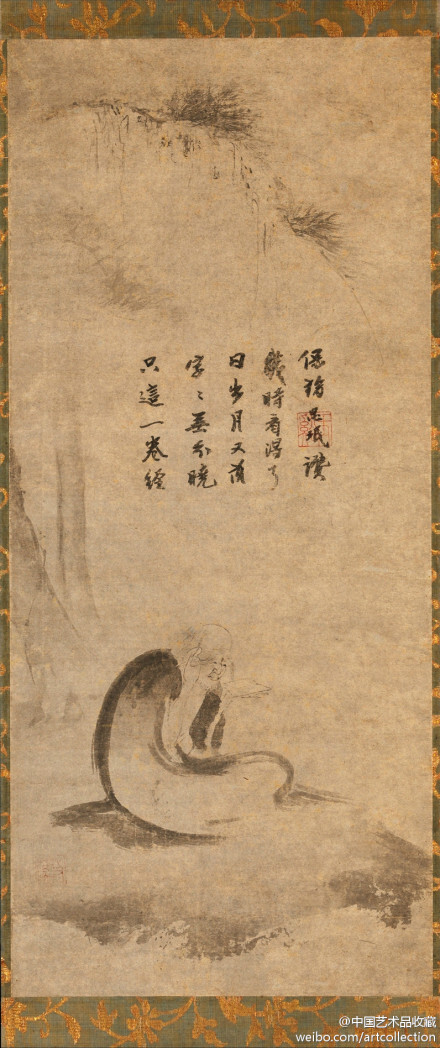 只這一卷經
字〻無分曉
日出月又落
幾時看得了
珉讚
@中国艺术品收藏
weibo.com/artcollection